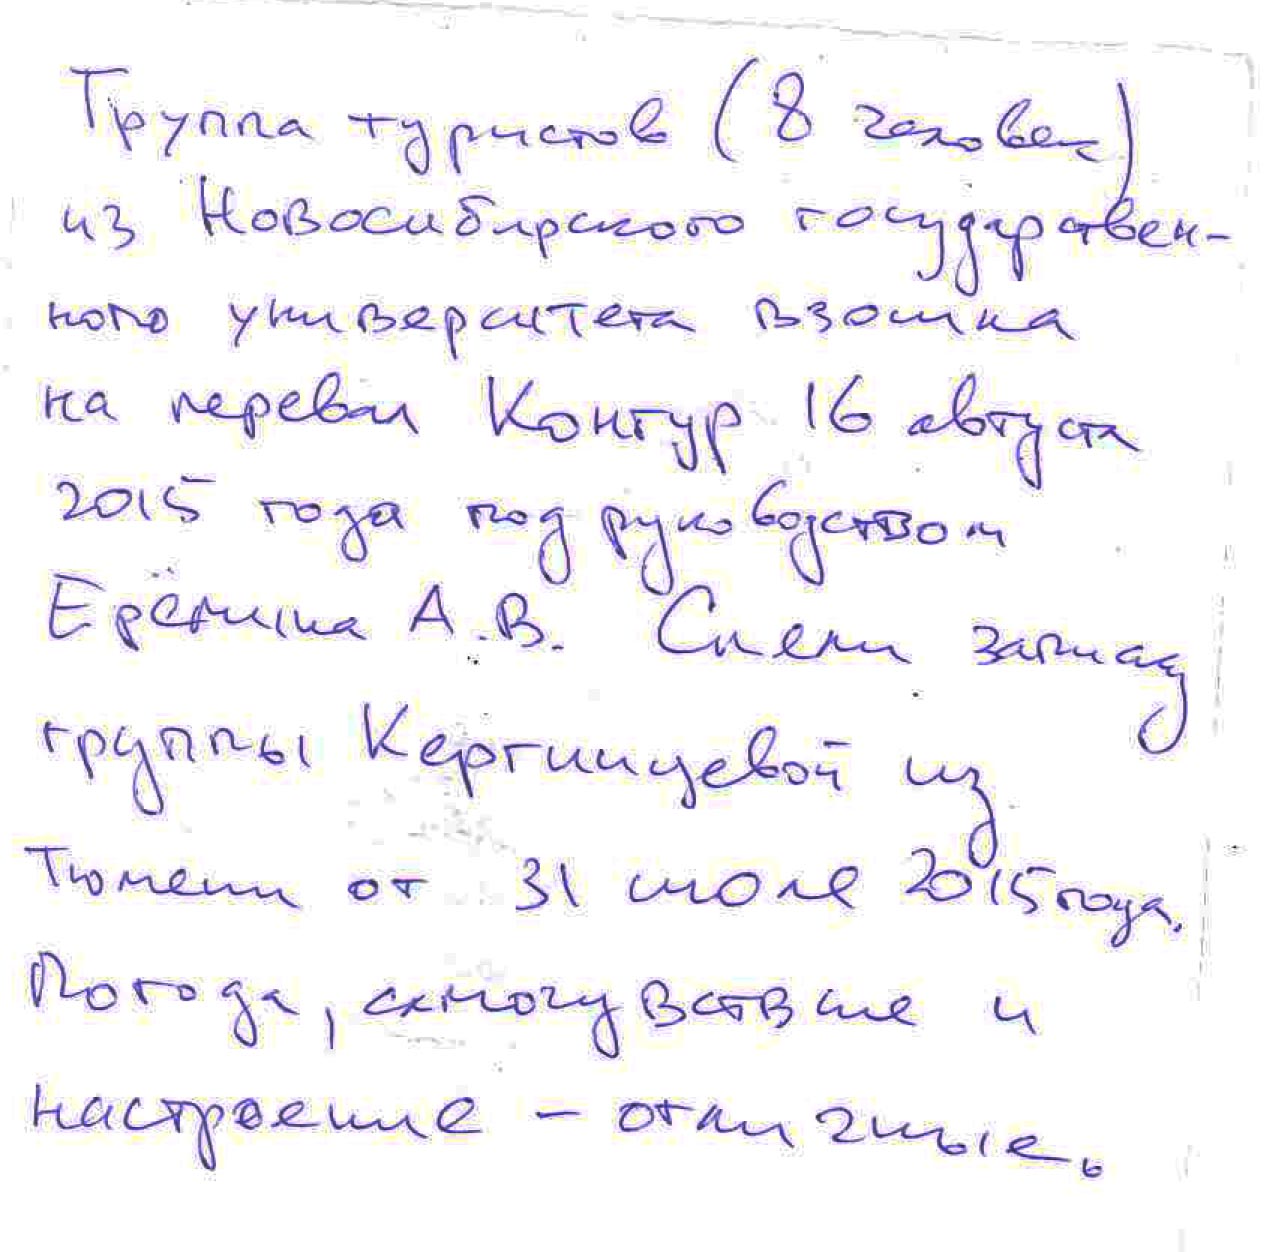 Группа туристов (8 человек)
из Новосибирского государствен-
ного университета взошла
на перевал Контур 16 августа
2015 года под руководством
Ерёмина А.В. Сняли записку
группы Кергинцевой из
Тюмени от 31 июля 2015 года.
Погода, самочувствие и
настроение - отличные.